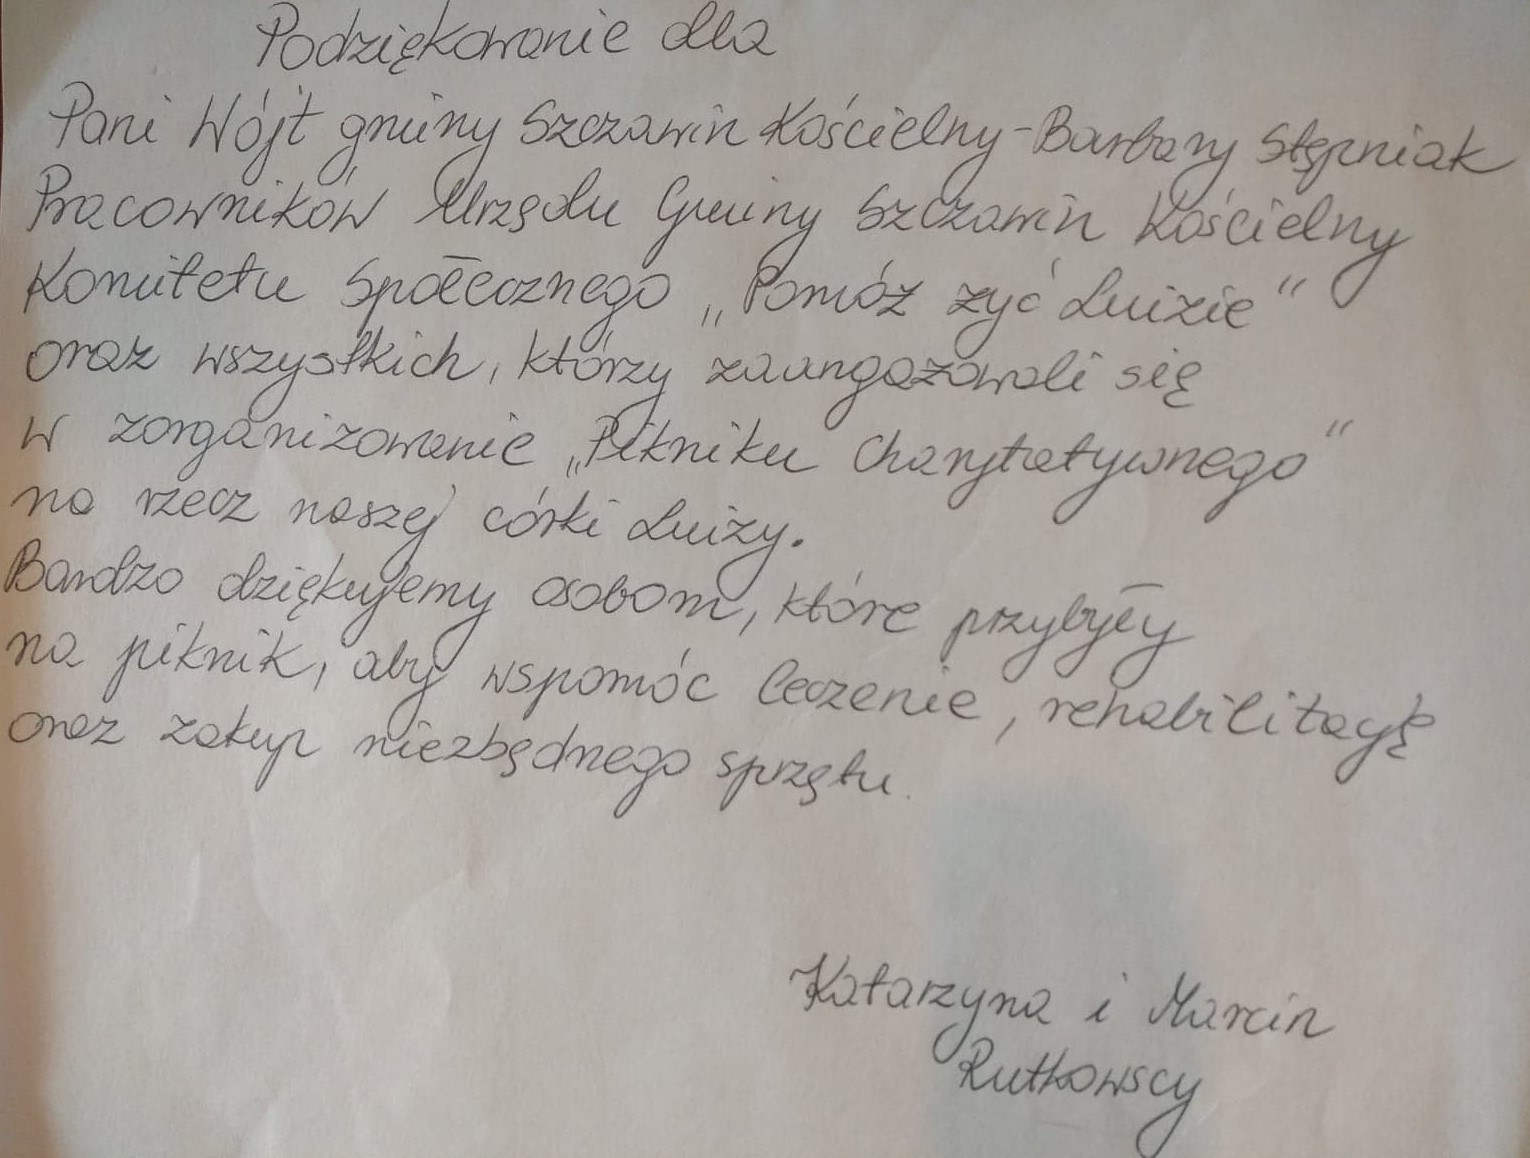 Podziękowanie dla
Pani Wójt gminy Szczawin Kościelny-Barbary Stępniak
Pracowników Urzędu Gminy Szczawin Kościelny
Komitetu Społecznego „Pomóż żyć Luizie"
oraz wszystkich, którzy zaangażowali się
w zorganizowanie „Pikniku Charytatywnego"
na rzecz naszej córki Luizy.
Bardzo dziękujemy osobom, które przybyły
na piknik, aby wspomóc leczenie, rehabilitację
oraz zakup niezbędnego sprzętu.
Katarzyna i Marcin
Rutkowscy